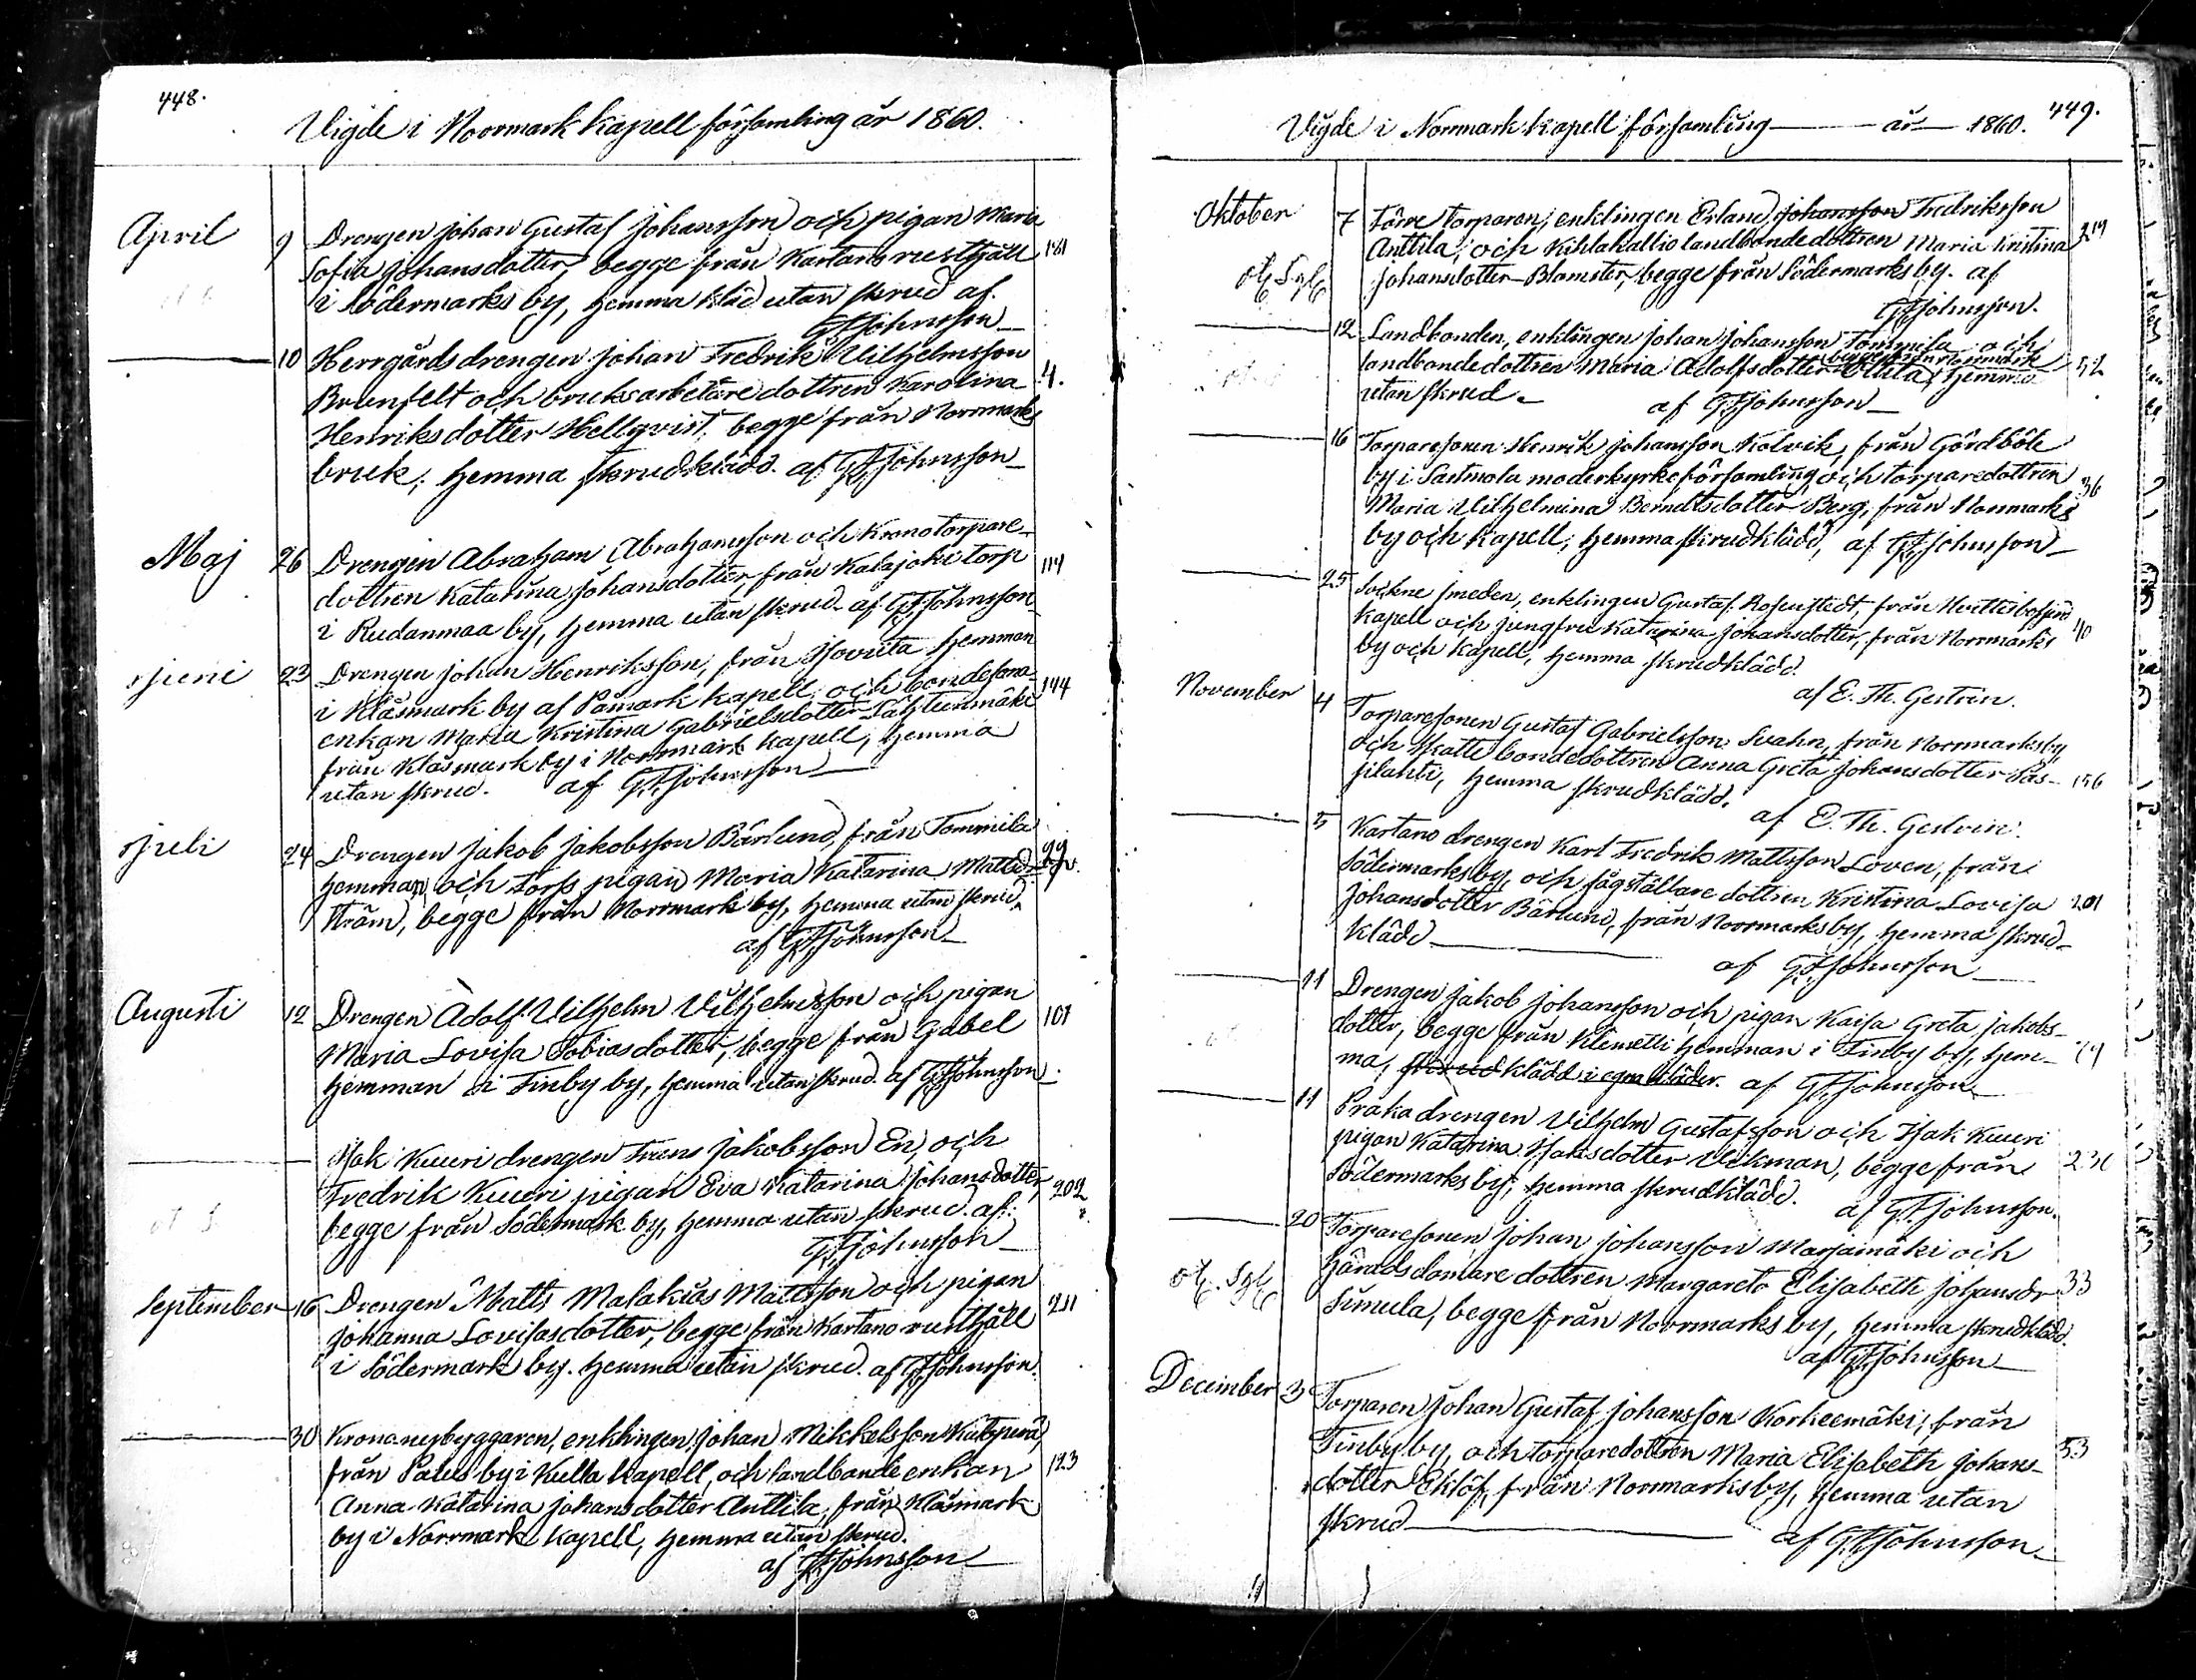 448.
Vigde i Norrmark Kapell församling år 1860.
April 9 Drengen Johan Gustaf Johansson och pigan Maria
Sofia Johansdotter, begge från Kartano rusthåll 181
i Södermarks by, hemma kläd utan skrud af
G F Johnsson
10 Herrgårds drengen Johan Fredrik Vilhelmsson
Brunfelt och bruksarbetare dottren Karolina 4.
Henriksdotter Hellqvist, begge från Norrmarks
bruk, hemma skrudklädd. af G F Johnsson
Maj 26 Drengen Abraham Abrahamsson och Kronotorpare-
dottren Katarina Johansdotter, från Kalajoki torp 114
i Rudanmaa by, hemma utan skrud. af G F Johnsson
Juni 23 Drengen Johan Henriksson, från hemman
i Klåsmark by af Påmark kapell, och bondesona- 144
enkan Maria Kristina Gabrielsdotter Lähteenmäki
från Klåsmark by i Norrmark kapell, hemma
utan skrud. af G F Johnsson
Juli 24 Drengen Jakob Jakobsson Bärlund, från Tommila
hemman och Torps pigan Maria Katarina Mattsd:r 99.
Ström, begge från Norrmark by, hemma utan skrud.
af G F Johnsson
Augusti 12 Drengen Adolf Vilhelm Vilhelmsson och pigan 101
Maria Lovisa Tobiasdotter, begge från Gabel
hemman i Finby by, hemma utan skrud. af G F Johnsson
Isak Kuuri drengen Frans Jakobsson En, och
Fredrik Kuuri pigan Eva Katarina Johansdotter, 202
begge från Södermark by, hemma utan skrud. af:
G F Johnsson
September 16 Drengen Matts Malakias Mattsson och pigan
Johanna Lovisasdotter, begge från Kartano rusthåll 211
i Södermark by. hemma utan skrud. af G F Johnsson.
30 Kronanybyggaren, enklingen Johan Mikkelsson
från by i Kulla kapell, och landbonde enkan 123
Anna Katarina Johansdotter Anttila, från Klåsmark
by i Norrmark kapell, hemma utan skrud.
af G F Johnsson
449.
Vigde i Norrmark kapell församling år 1860.
Oktober 7 Förre torparen, enklingen Erland Johansson Fredriksson
Anttila, och Kihlakallio landbondedottren Maria Kristina 219
Johansdotter Blomster, begge från Södermarks by. af
G F Johnsson.
12 Landbonden, enklingen Johan Johansson Tommila och
begge från Norrmark
landbondedottren Maria Adolfsdotter Ollila, hemma 52
utan skrud. af G F Johnsson
16 Torparesonen Henrik Johansson Kolvik, från Gårdböle
by i Sastmola moderkyrkoförsamling och torparedottren 36
Maria Vilhelmina Berndtsdotter Berg, från Norrmarks
by och kapell, hemma skrudklädd, af G F Johnsson
25 Sockne smeden, enklingen Gustaf Rosenstedt, från Hvittisbofjerd
kapell och jungfru Katarina Johansdotter, från Norrmarks 40
by och kapell, hemma skrudklädd.
af E. Th. Gestrin.
November 4 Torparesonen Gustaf Gabrielsson Svahn, från Norrmarks by,
och skattebondedottren Anna Greta Johansdotter Pas-
silahti, hemma skrudklädd. 156
af E. Th. Gestrin.
5 Kartano drengen Karl Fredrik Mattsson Loven, från
Södermarks by, och sågställare dottren Kristina Lovisa 201
Johansdotter Bärlund, från Norrmarks by, hemma skrud-
klädd af G F Johnsson
11 Drengen Jakob Johansson och pigan Kaisa Greta Jakobs-
dotter, begge från Klemetti hemman i Finby by, hem-
ma, skrudklädd i egna kläder. af G F Johnsson
11 Prakadrengen Vilhelm Gustafsson och Isak Kuuri
pigan Katarina Isaksdotter Vikman, begge från
Södermarks by, hemma skrudklädd. af G F Johnsson.
20 Torparesonen Johan Johansson Marjamäki och
häradsdomare dottren Margareta Elisabeth Johansdr 33
Simula, begge från Norrmarks by, hemma skrudklädd.
af G F Johnsson
December 3 Torparen Johan Gustaf Johansson Korkeemäki, från
Finby by, och torparedottren Maria Elisabeth Johans- 53
dotter Eklöf, från Norrmarks by, hemma utan
skrud af G F Johnsson